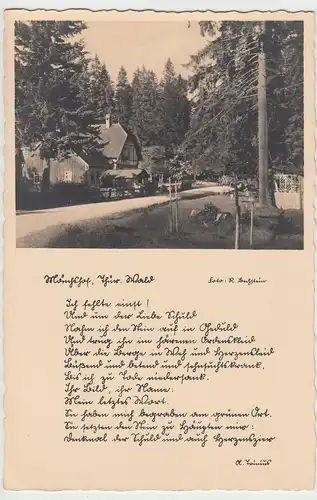 Mönchshof, Thür. Wald
Foto: R. Bechstein
Ich fehlte einst!
Und um der Liebe Schuld
Nahm ich den Stein auf in Geduld
Und trug ihn im härenen Ordenskleid
Über die Berge in Weh und Herzenleid
Büßend und betend und sehnsuchtskrank,
Bis ich zu Tode niedersank.
Ihr Bild, ihr Name:
Mein letztes Wort.
Sie haben mich begraben am grünen Ort.
Sie setzten den Stein zu Häupten mir:
Denkmal der Schuld und auch Herzenszier
A. Trinius